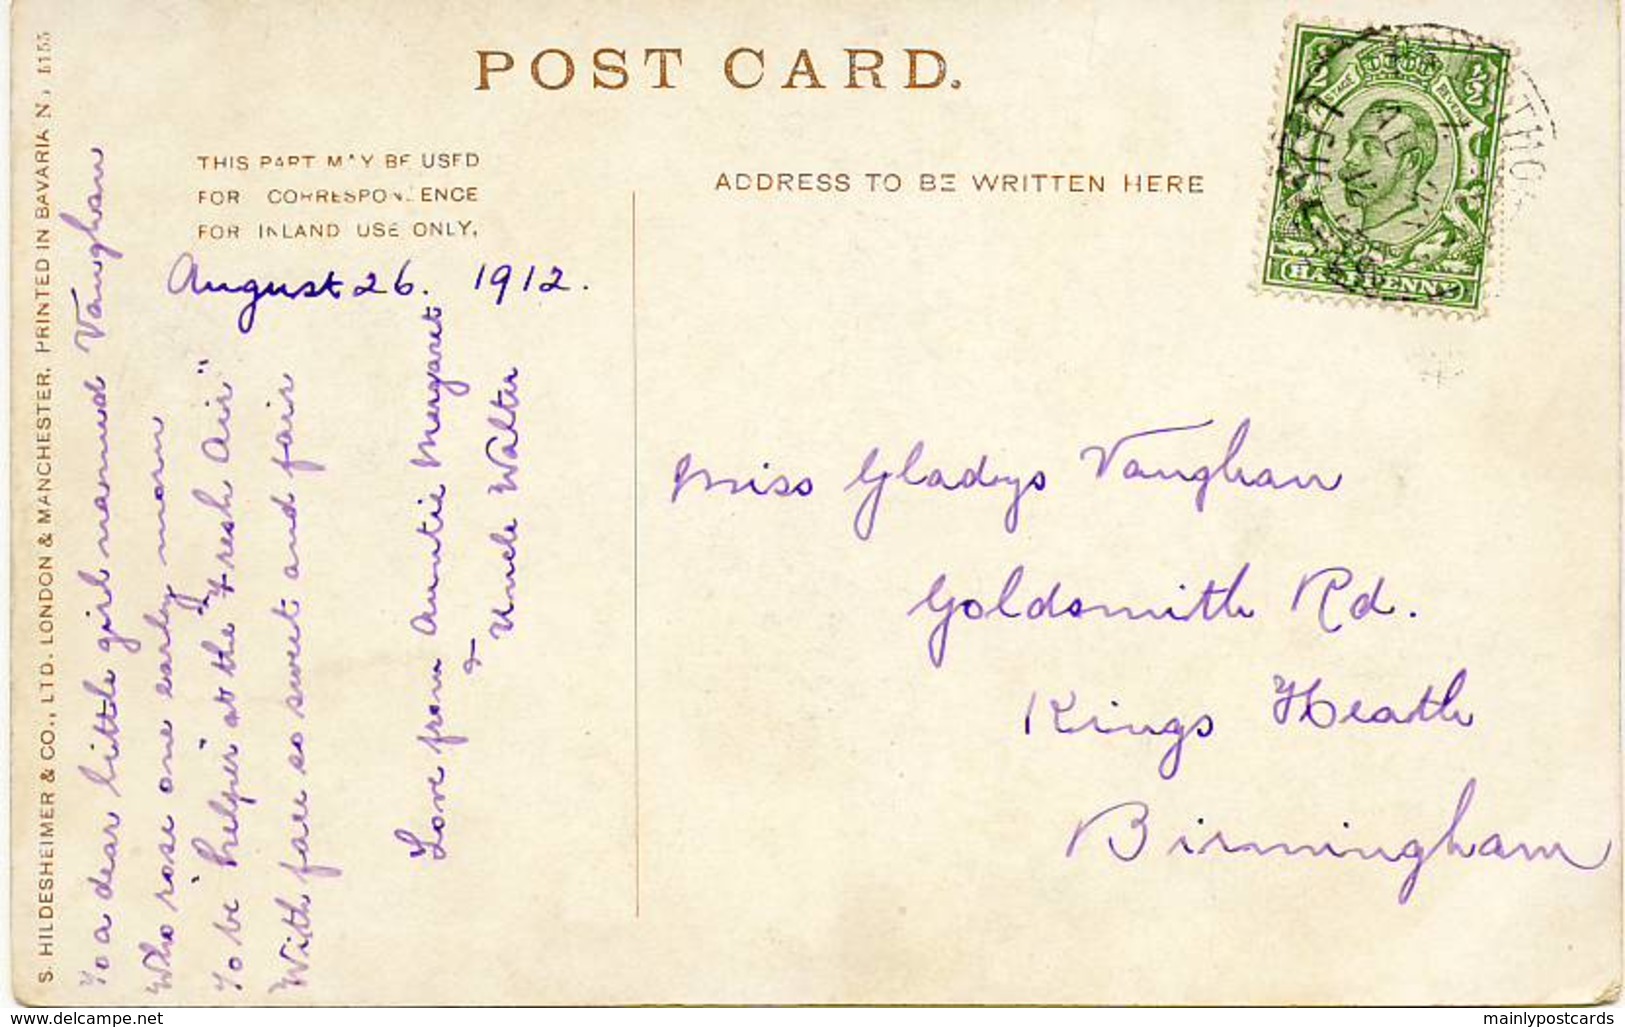 POST CARD.
THIS PART MAY BE USED
FOR CORRESPONDENCE
FOR INLAND USE ONLY.
ADDRESS TO BE WRITTEN HERE
S. HILDESHEIMER & CO., LTD. LONDON & MANCHESTER. PRINTED IN BAVARIA
August 26. 1912.
To a dear little girl named Vaughan
Who rose one early morn
To be "helper at the "Fresh Air"
With face so sweet and fair
Love from Auntie Margaret
& Uncle Walter
Miss Gladys Vaughan
Goldsmith Rd.
Kings Heath
Birmingham
1/2 1/2
POSTAGE REVENUE
HALFPENNY
www.delcampe.net
mainlypostcards